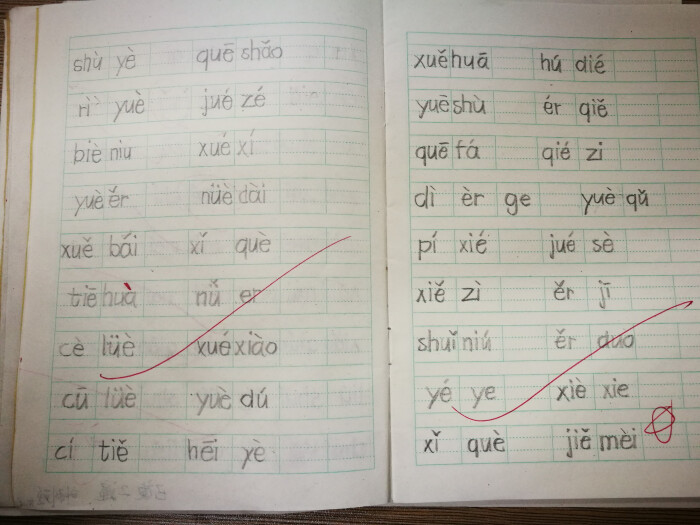 shù yè quē shǎo
rì yuè jué zé
biè niu xué xí
yuè ěr nüè dài
xuě bái xǐ què
tiē huà nǚ er
cè lüè xué xiào
cū lüè yuè dú
cí tiě hēi yè
xuě huā hú dié
yuē shù ér qiě
quē fá qié zi
dì èr ge yuè qǔ
pí xié jué sè
xiě zì ěr jī
shuǐ niú ěr duo
yé ye xiè xie
xǐ què jiě mèi